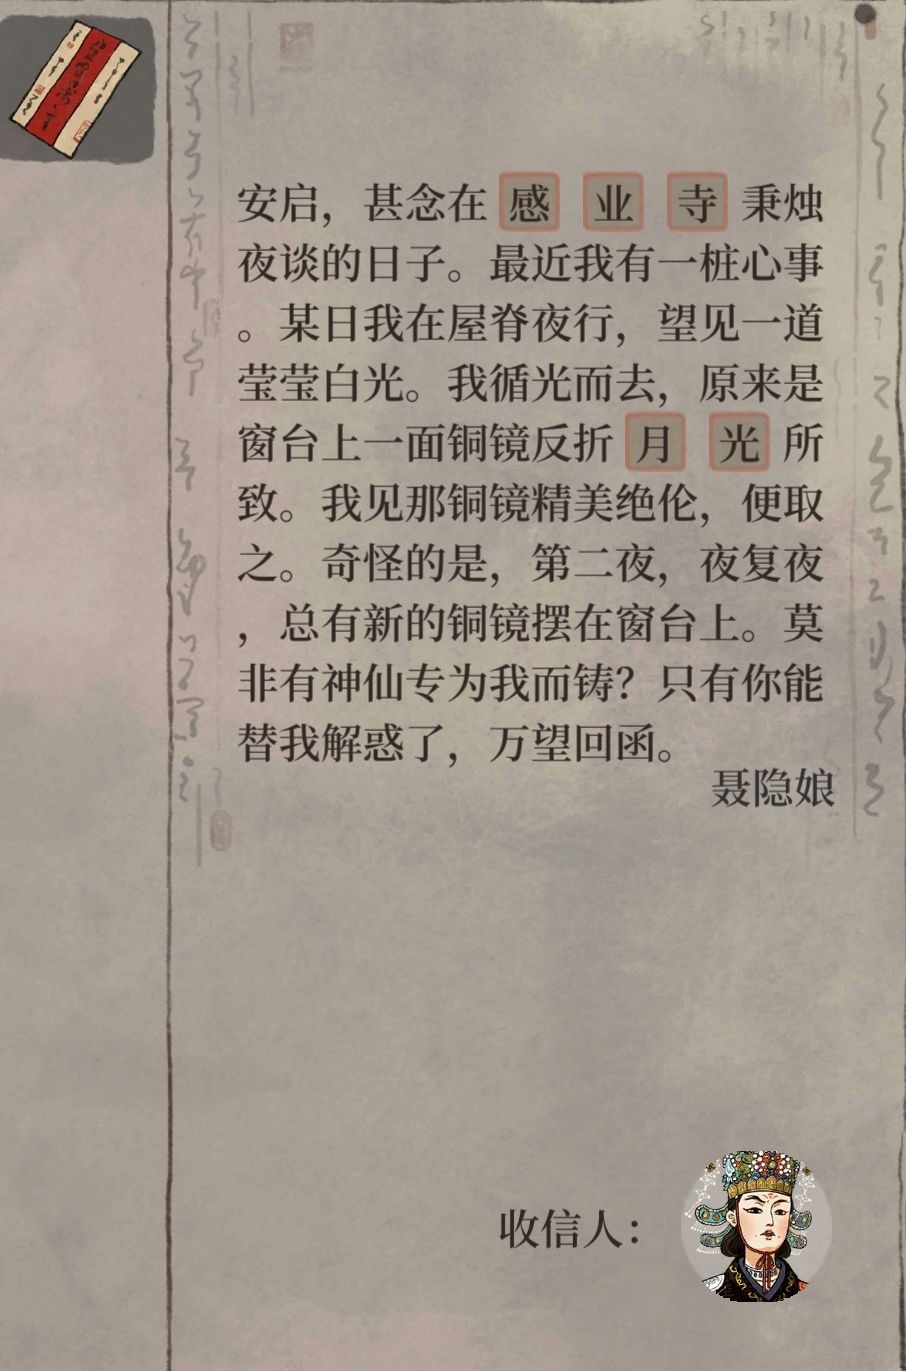 安启，甚念在 感 业 寺 秉烛
夜谈的日子。最近我有一桩心事
。某日我在屋脊夜行，望见一道
莹莹白光。我循光而去，原来是
窗台上一面铜镜反折 月 光 所
致。我见那铜镜精美绝伦，便取
之。奇怪的是，第二夜，夜复夜
，总有新的铜镜摆在窗台上。莫
非有神仙专为我而铸？只有你能
替我解惑了，万望回函。
聂隐娘
收信人：